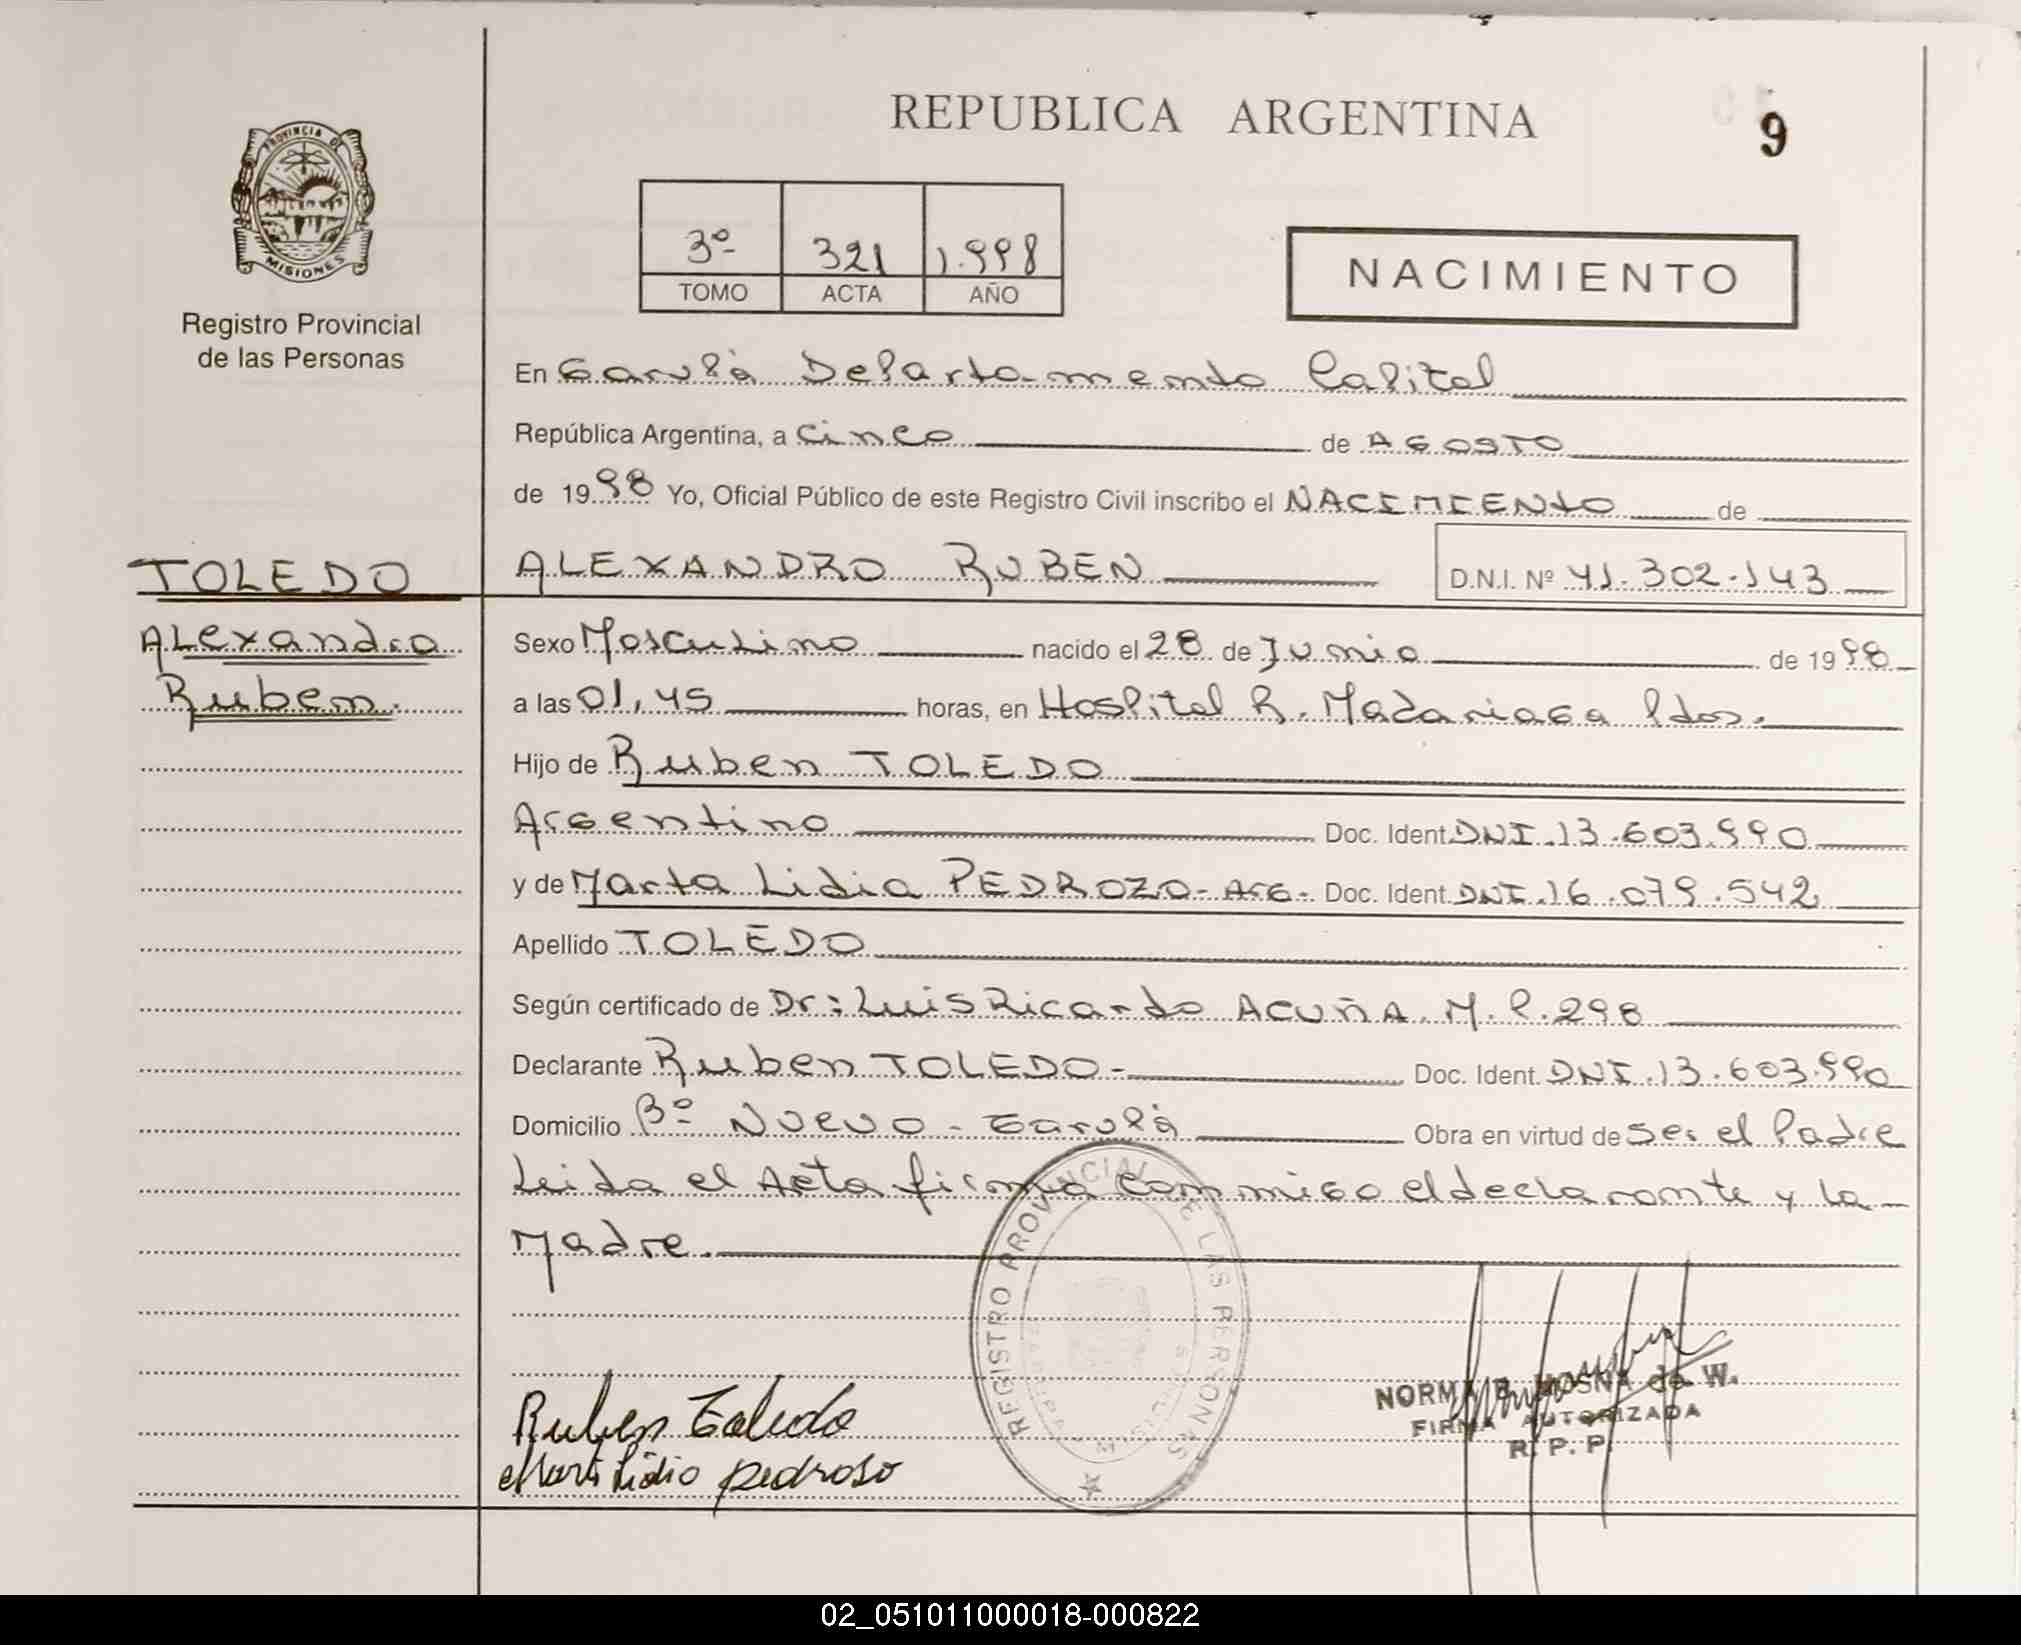 REPUBLICA ARGENTINA
9
PROVINCIA DE
MISIONES
Registro Provincial
de las Personas
3º 321 1.998
TOMO ACTA AÑO
NACIMIENTO
En Garupá Departamento Capital
República Argentina, a cinco de AGOSTO
de 1998 Yo, Oficial Público de este Registro Civil inscribo el NACIMIENTO de
TOLEDO
ALEXANDRO RUBEN D.N.I. Nº 41.302.143
Alexandro
Sexo Masculino nacido el 28 de Junio de 1998
Ruben.
a las 01,45 horas, en Hospital R. Madariaga Pdas.
Hijo de Ruben TOLEDO
Argentino Doc. Ident. DNI.13.603.990
y de Marta Lidia PEDROZO-Arg- Doc. Ident. DNI.16.079.542
Apellido TOLEDO
Según certificado de Dr: Luis Ricardo ACUÑA. M.P.298
Declarante Ruben TOLEDO- Doc. Ident. DNI.13.603.990
Domicilio Bº Nuevo - Garupá Obra en virtud de ser el Padre
Leida el Acta firma conmigo el declarante y la
Madre.
REGISTRO PROVINCIAL DE LAS PERSONAS
Ruben Toledo
Marta Lidia Pedroso
NORMA B. MOSNA de W.
FIRMA AUTORIZADA
R. P. P.
02_051011000018-000822